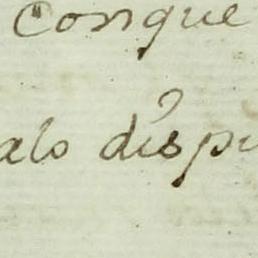 congue
alo dispu